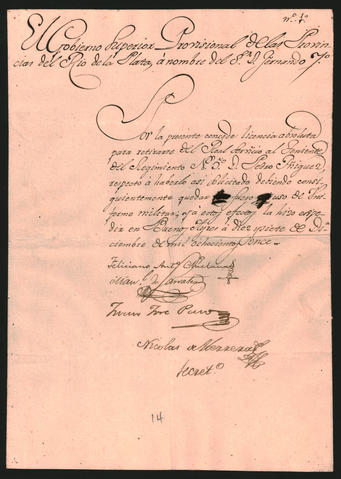 El Gobierno Superior Provisional de las Provin-
cias del Rio de la Plata, á nombre del Sr. D. Fernando 7º
Por la presente concede licencia absoluta
para retirarse del Real servicio al
del Regimiento Nº D. Pedro Iñiguez,
respecto á haberlo asi solicitado debiendo consi-
guientemente quedar uso de Uni-
forme militar, y á este efecto la hizo expe-
dir en Buenos Ayres á diez y siete de Di-
ciembre de mil ochocientos once.
Feliciano Antº Chiclana
Man. de Sarratea
Juan José Passo
Nicolas de Herrera
Secretº
14